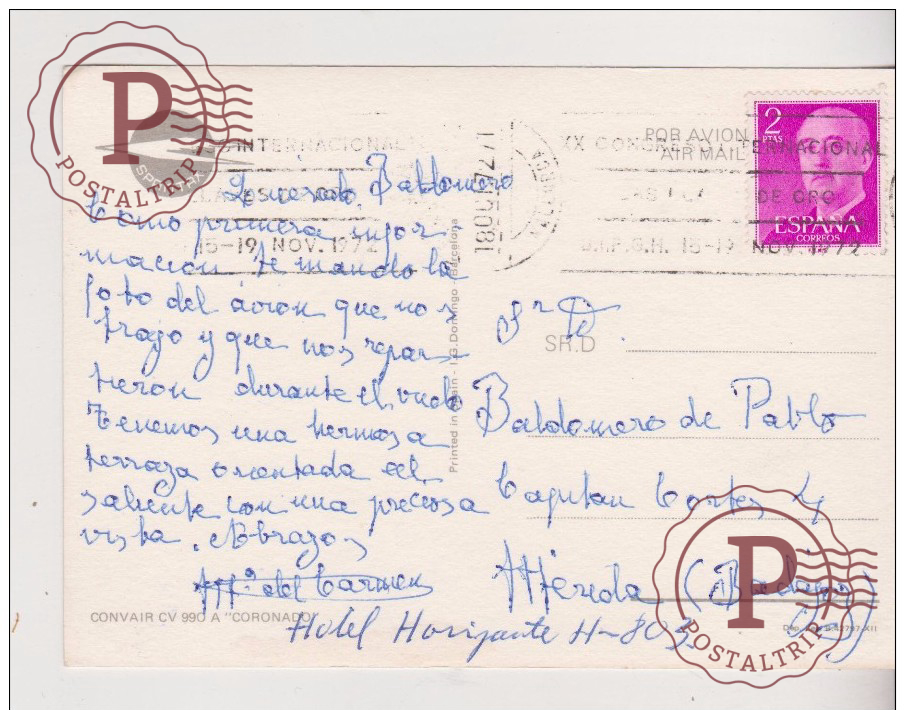 P
POSTALTRIP
INTERNACIONAL
15-19 NOV. 1972
XX CONGRESO INTERNACIONAL
DE ORO
15-19 NOV. 1972
POR AVION
AIR MAIL
2
PTAS
ESPAÑA
CORREOS
Querido Baldomero
Como primera infor
macion te mando la
foto del avion que nos
trajo y que nos repar
tieron durante el vuelo
Tenemos una hermosa
terraza orientada al
saliente con una preciosa
vista. Abrazos
Mª del Carmen
Hotel Horizonte H-803
CONVAIR CV 990 A "CORONADO"
Printed in Spain - I.G. Domingo - Barcelona
Sr D
SR.D
Baldomero de Pablo
Capitan Cortes 4
Merida (Badajoz)
P
POSTALTRIP